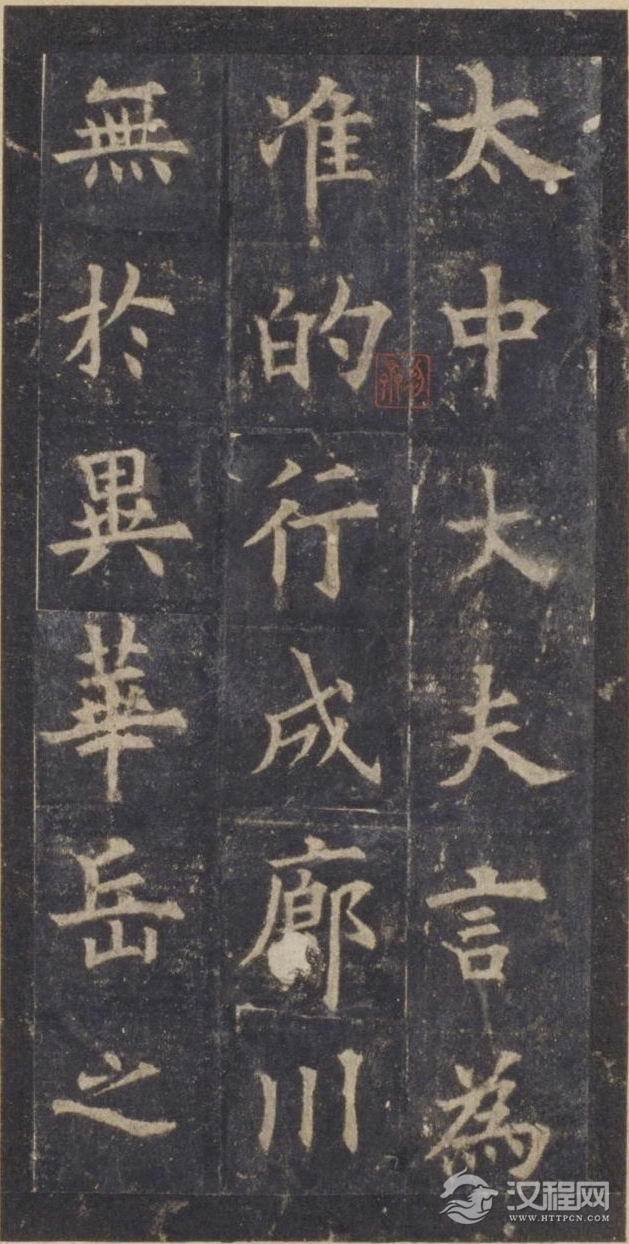 太中大夫言為
准的行成廊川
無於異華岳之
汉程网
WWW.HTTPCN.COM